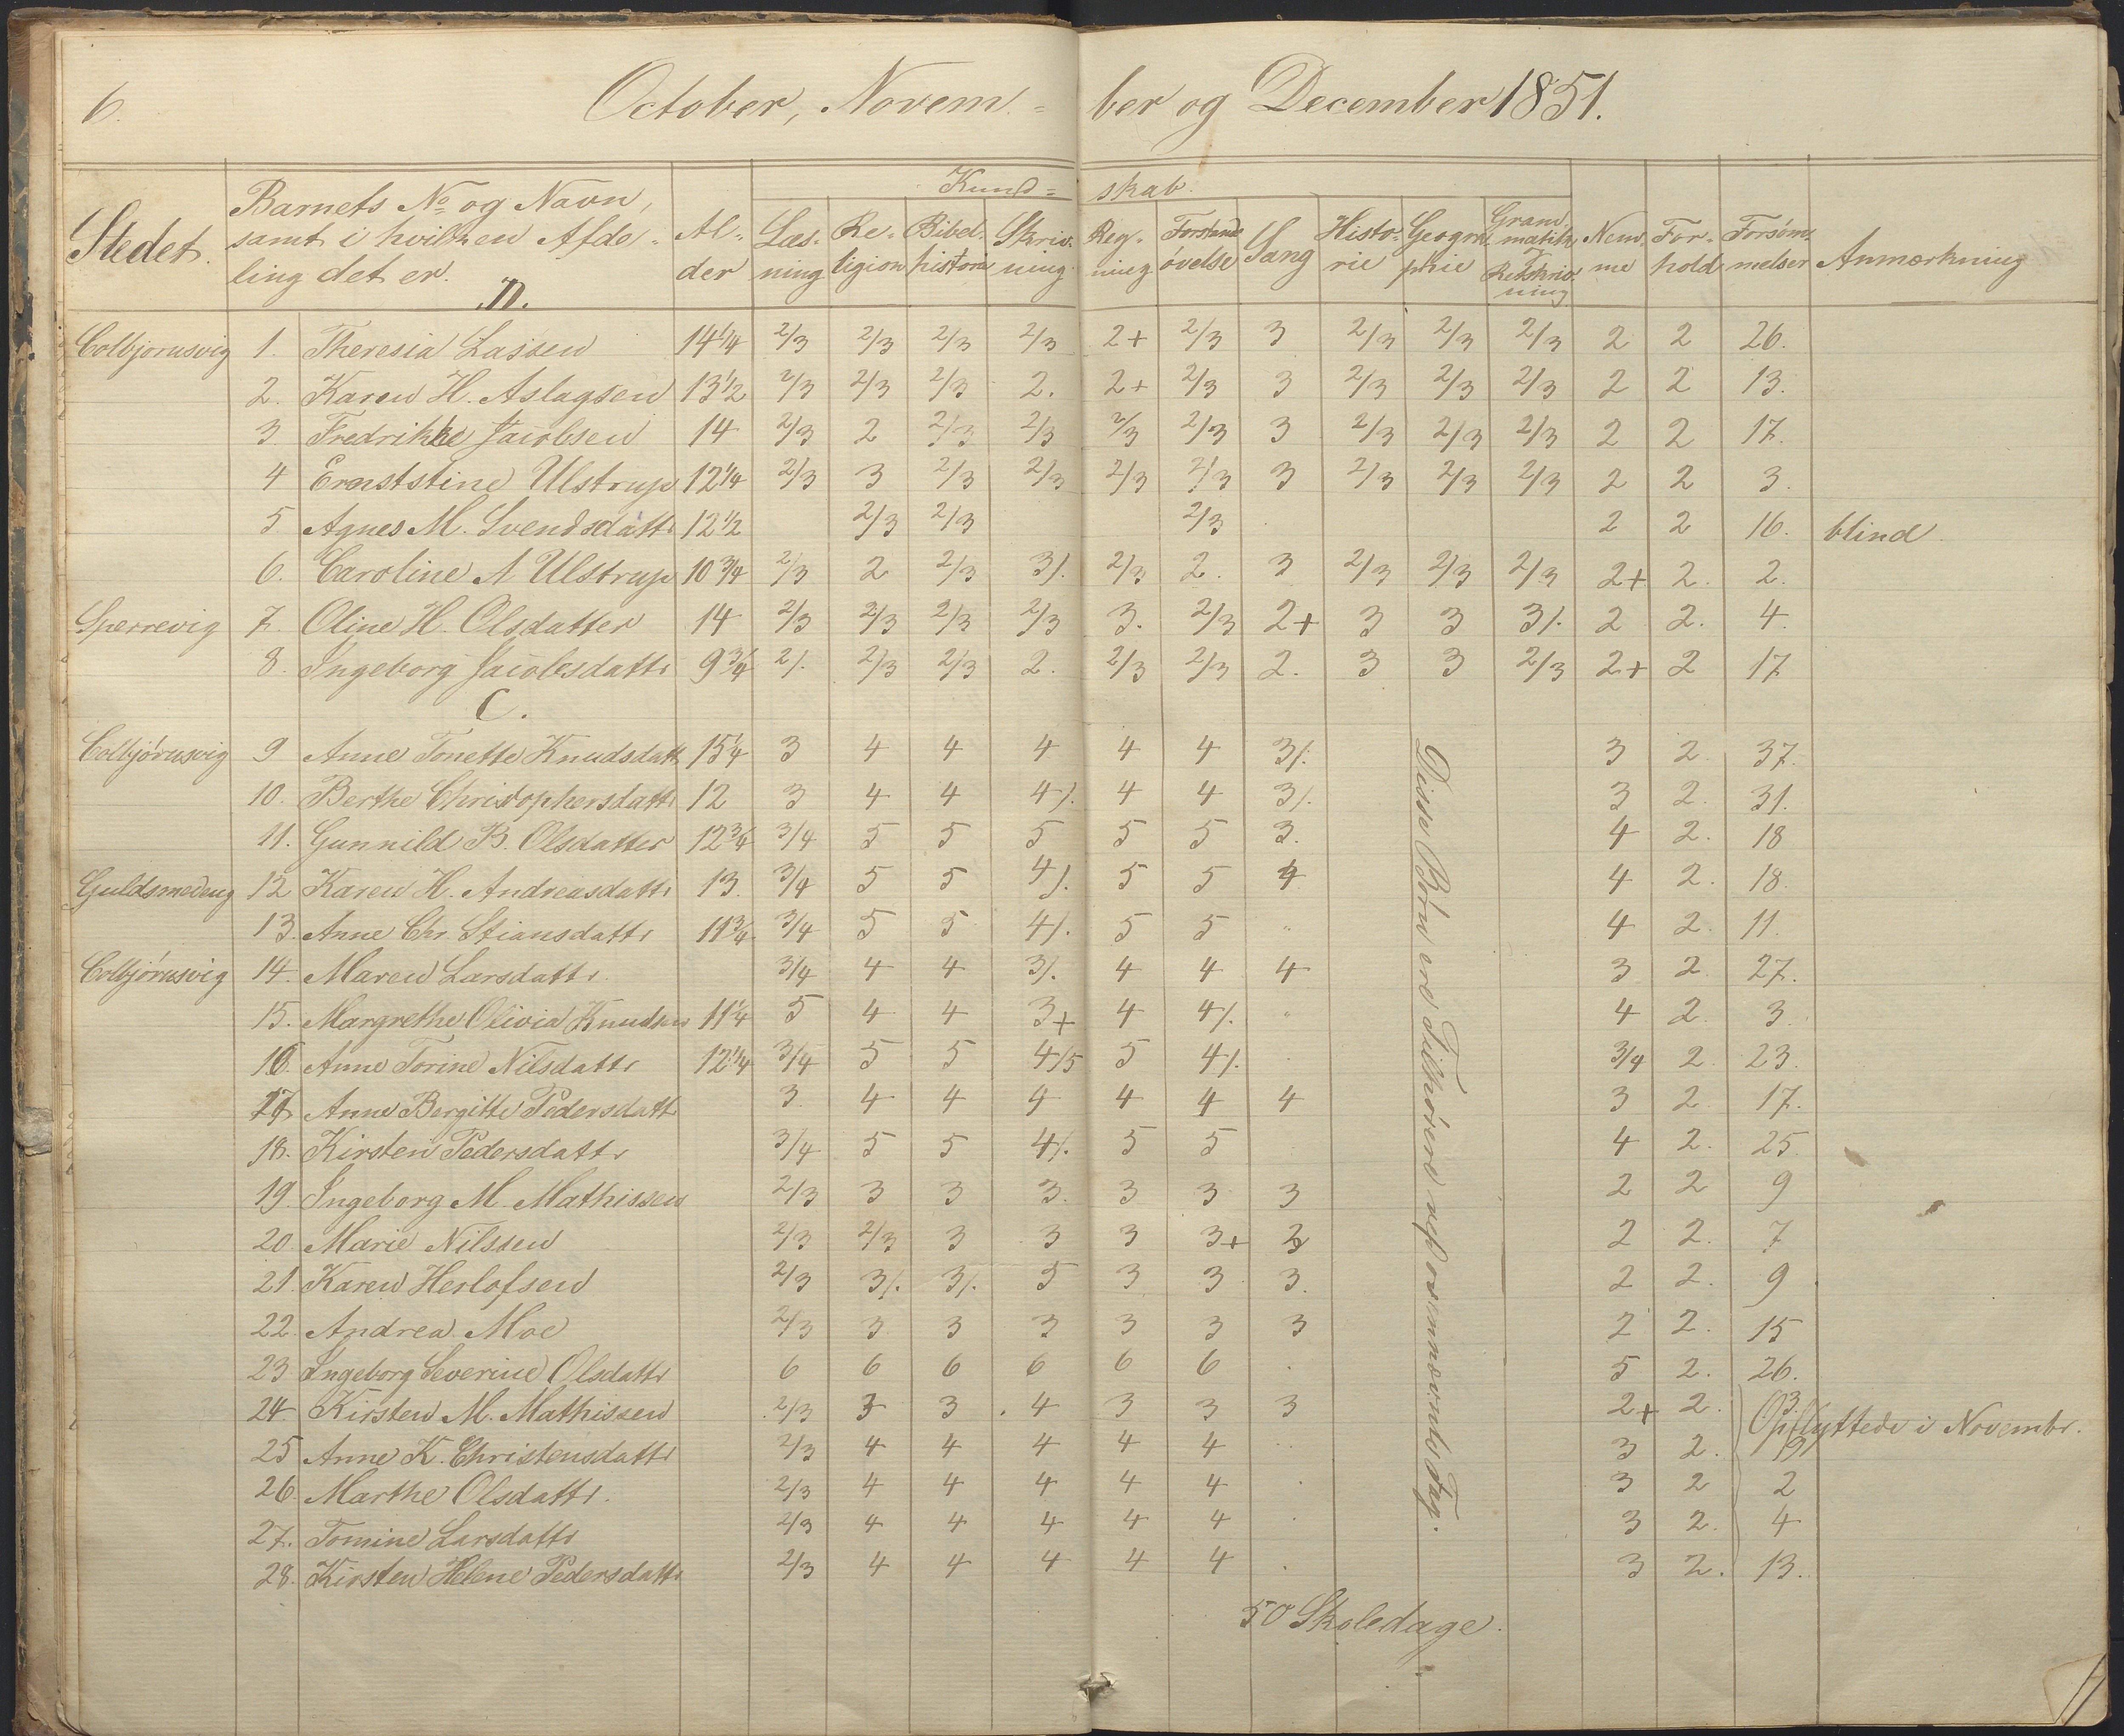 6.
October, Novem- ber og December 1851.
Stedet. Barnets No og Navn, samt i hvilken Afde- ling det er. Al- der Kund- skab. Læs- ning Re- ligion Bibel- historie Skriv- ning Reg- ning Forstands øvelse Sang Histo- rie Geogra- phie Gram- matik, Retskriv- ning Nem- me For- hold Forsøm- melser Anmærkning
D.
Colbjørnsvig 1. Theresia Lassen 14 1/4 2/3 2/3 2/3 2/3 2+ 2/3 3 2/3 2/3 2/3 2 2 26.
2. Karen H. Aslagsen 13 1/2 2/3 2/3 2/3 2. 2+ 2/3 3 2/3 2/3 2/3 2 2 13.
3 Fredrikke Jacobsen 14 2/3 2 2/3 2/3 2/3 2/3 3 2/3 2/3 2/3 2 2 17.
4 Ernststine Ulstrup 12 1/4 2/3 3 2/3 2/3 2/3 2/3 3 2/3 2/3 2/3 2 2 3.
5 Agnes M. Svendsdattr 12 1/2 2/3 2/3 2/3 2 2 16. blind
6. Caroline A Ulstrup 10 3/4 2/3 2 2/3 3/. 2/3 2. 3 2/3 2/3 2/3 2+ 2. 2.
Sperrevig 7. Oline H. Olsdatter 14 2/3 2/3 2/3 2/3 3. 2/3 2+ 3 3 3/. 2 2. 4.
8. Ingeborg Jacobsdattr 9 3/4 2/. 2/3 2/3 2. 2/3 2/3 2. 3 3 2/3 2+ 2 17
C.
Colbjørnsvig 9 Anne Tonette Knudsdatt 15 1/4 3 4 4 4 4 4 3/. 3 2. 37.
10. Berthe Christophersdattr 12 3 4 4 4/. 4 4 3/. 3 2. 31.
11. Gunnild B. Olsdatter 12 3/4 3/4 5 5 5 5 5 3. 4 2. 18
Guldsmedeng 12 Karen H. Andreasdattr 13. 3/4 5 5 4/. 5 5 4 4 2. 18.
13. Anne Chr. Stiansdattr 11 3/4 3/4 5 5 4/. 5 5 " 4 2. 11.
Colbjørnsvig 14. Maren Larsdattr. 3/4 4 4 3/. 4 4 4 3 2. 27.
15. Margrethe Olivia Knudsen 11 1/4 5 4 4 3+ 4 4/. " 4 2. 3.
16. Anne Torine Nilsdattr 12 1/4 3/4 5 5 4/5 5 4/. 3/4 2. 23.
17 Anne Bergitte Pedersdatt 3. 4 4 4 4 4 4 3 2. 17.
18. Kirsten Pedersdattr 3/4 5 5 4/. 5 5 4 2. 25.
19. Ingeborg M. Mathissen 2/3 3 3 3. 3 3 3 2 2 9
20. Marie Nilssen 2/3 2/3 3 3 3 3+ 3 2 2. 7
21. Karen Herlofsen 2/3 3/. 3/. 5 3 3 3. 2 2. 9.
22. Andrea Moe 2/3 3 3 3 3 3 3 2 2. 15
23 Ingeborg Severine Olsdattr 6 6 6 6 6 6 . 5 2. 26.
24. Kirsten M. Mathissen 2/3 3 3 4 3 3 3 2+ 2. 3. Opflyttede i Novembr.
25 Anne K. Christensdattr 2/3 4 4 4 4 4 .. 3 2. 19
26. Marthe Olsdattr. 2/3 4 4 4 4 4 . 3 2 2
27. Tomine Larsdattr 2/3 4 4 4 4 4 . 3 2. 4
28. Kirsten Helene Pedersdattr 2/3 4 4 4 4 4 . 3 2. 13.
Disse Børn ere Tilhørere ved ovennævnte Fag.
50 Skoledage.